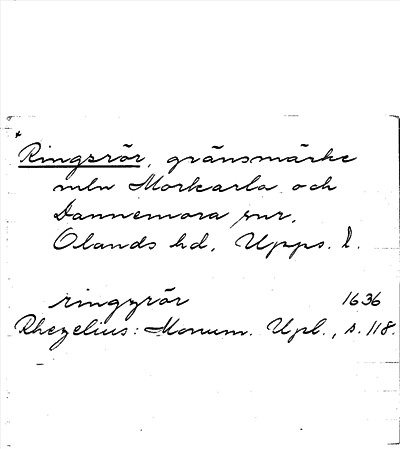 * Ringsrör, gränsmärke
mln Morkarla och
Dannemora snr,
Olands hd, Upps. l.
ringzrör 1636
Rhezelius: Monum. Upl., s. 118.